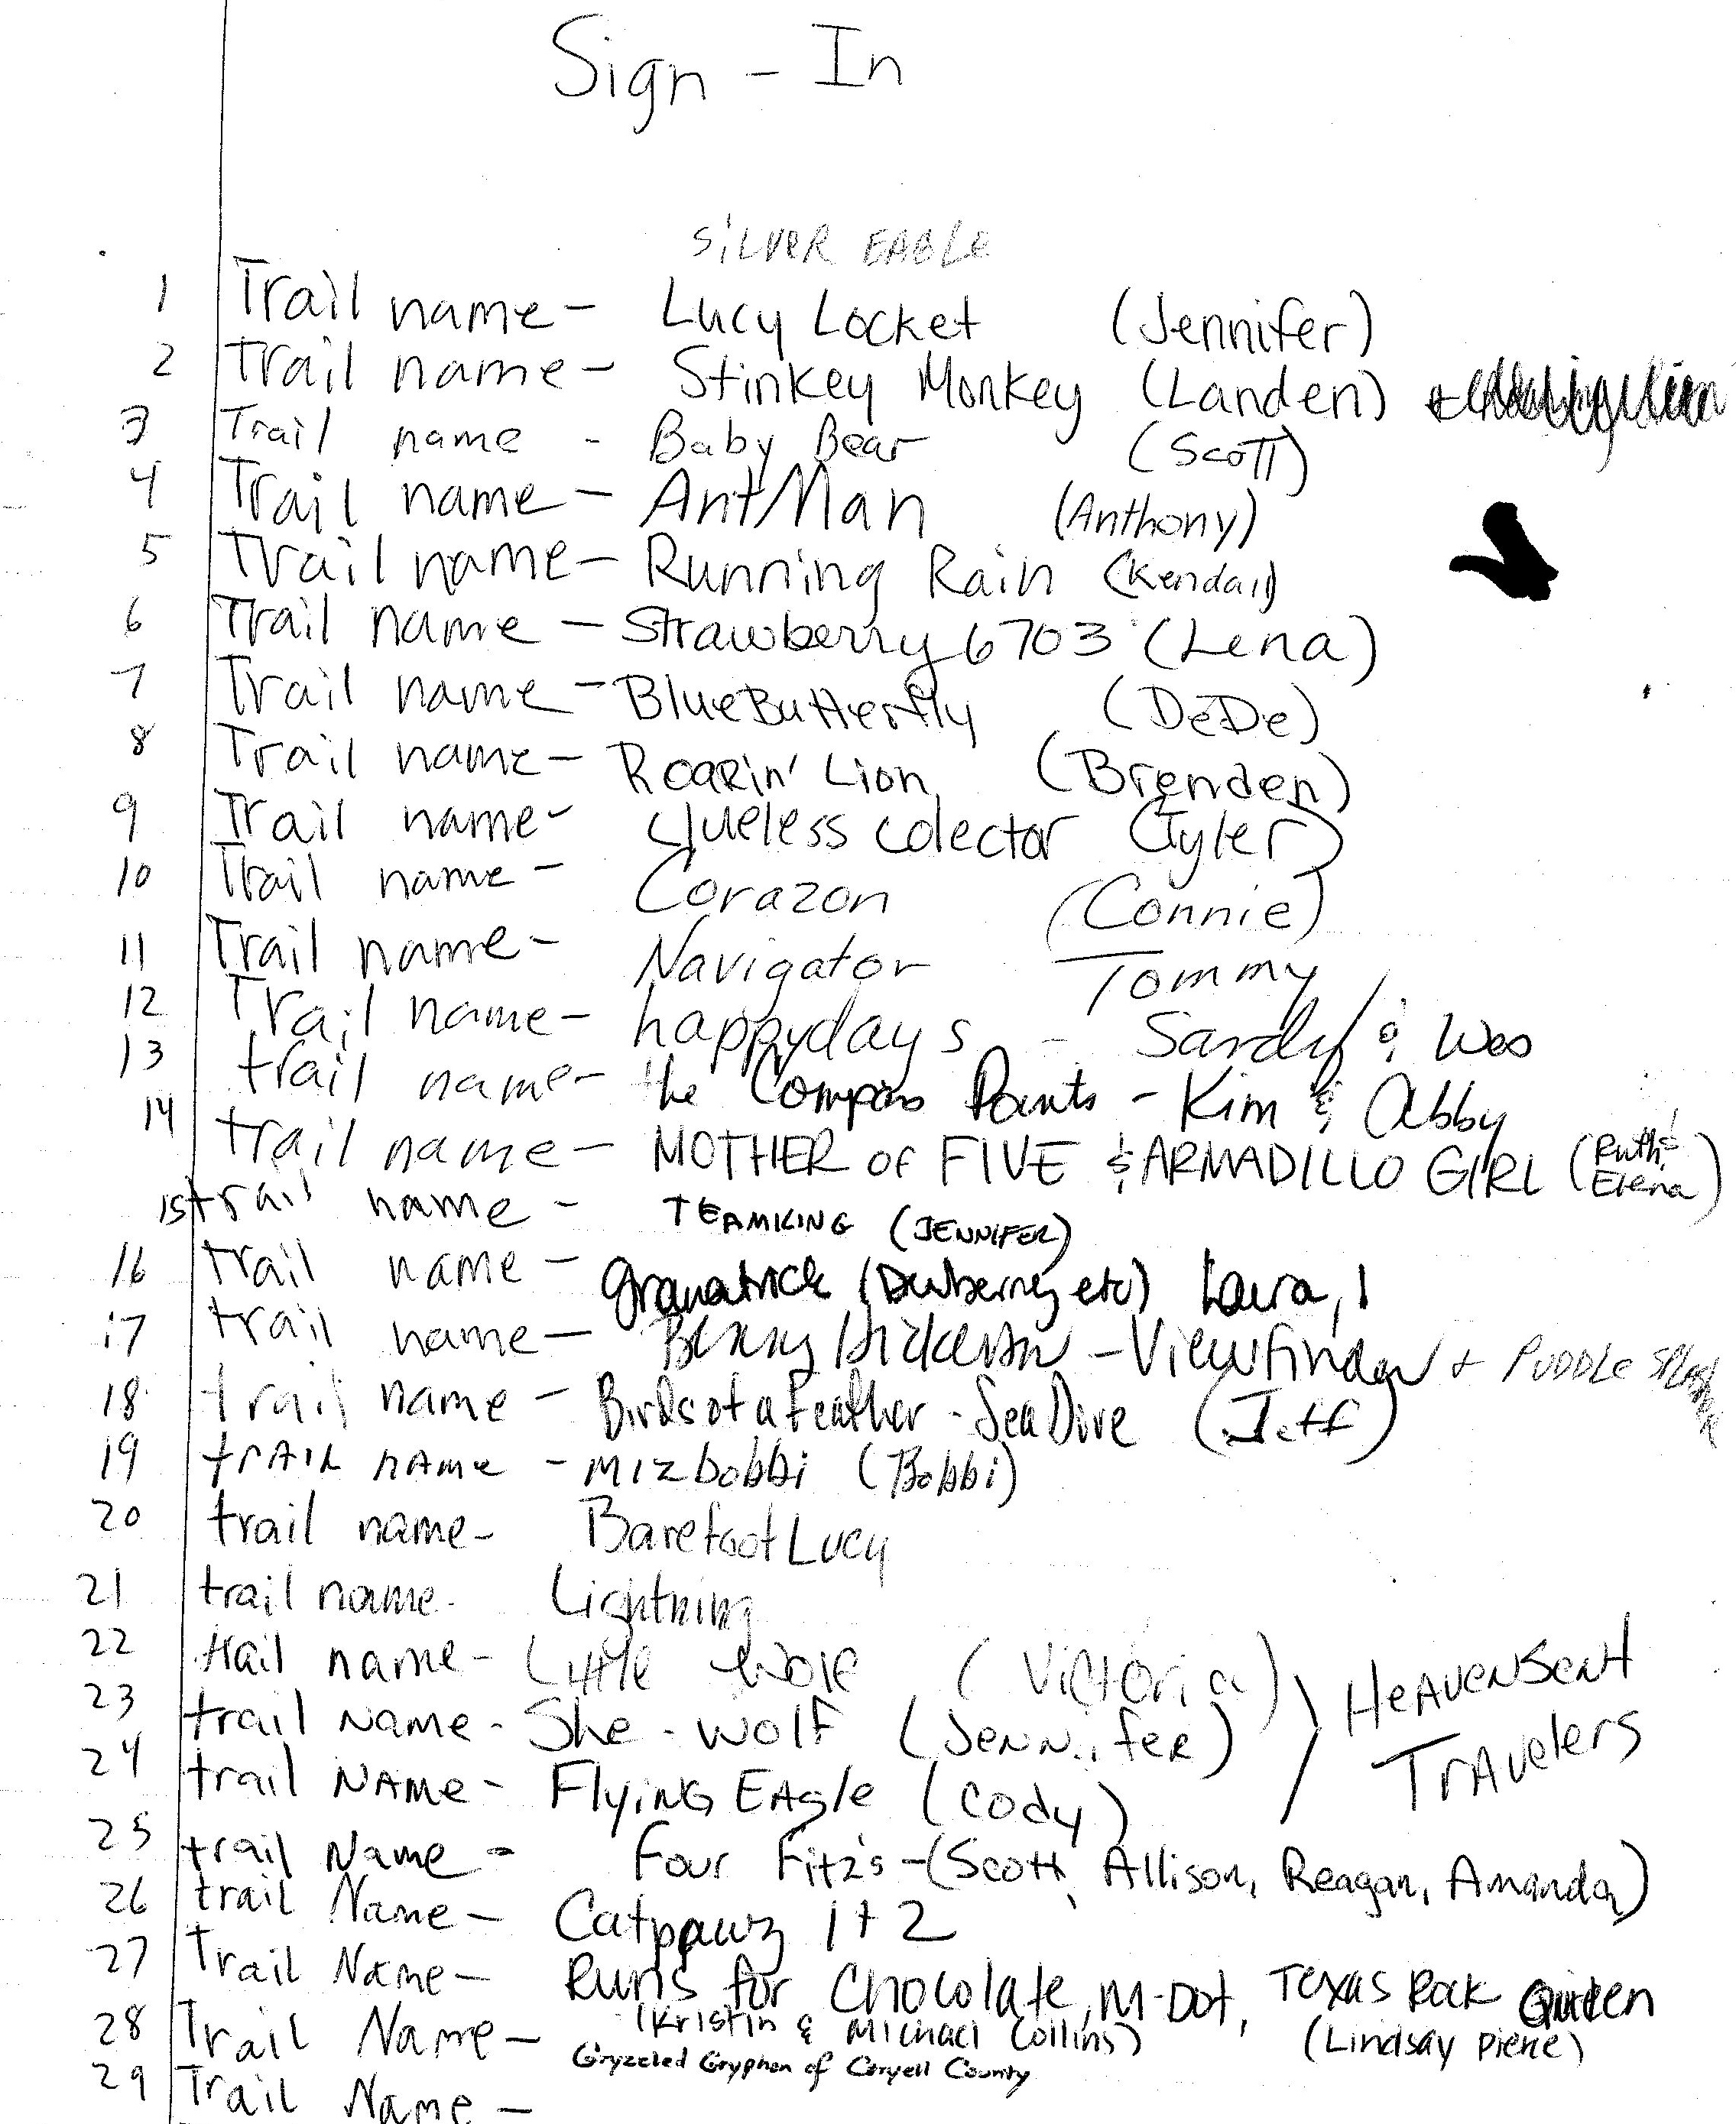 Sign - In
SiLVER EAGLE
1 Trail name - Lucy Locket (Jennifer)
2 Trail name - Stinkey Monkey (Landen)
3 Trail name - Baby Bear (Scott)
4 Trail name - AntMan (Anthony)
5 Trail name - Running Rain (Kendall)
6 Trail name - Strawberry6703 (Lena)
7 Trail name - BlueButterfly (DeDe)
8 Trail name - Roarin' Lion (Brenden)
9 Trail name - Clueless colector (Tyler)
10 Trail name - Corazon (Connie)
11 Trail name - Navigator Tommy
12 Trail name - happydays - Sandy & Wes
13 trail name - the Compass Points - Kim & Abby
14 trail name - MOTHER of FIVE & ARMADILLO GIRL (Ruth & Elena)
15 trail name - TEAMKING (JENNIFER)
16 trail name - (Dewberry, etc) Laura, 1
17 trail name - Benny - Viewfinder + PUDDLE
18 trail name - Birds of a Feather - SeaDive (Jeff)
19 trAIL nAme - mizbobbi (Bobbi)
20 trail name - Barefoot Lucy
21 trail name - Lightning
22 trail name - Little Wolf (Victoria)
23 trail Name - She-wolf (Jennifer) HeAvenSent
24 trail NAMe - Flying EAgle (Cody) TrAvelers
25 trail Name - Four Fitz's - (Scott, Allison, Reagan, Amanda)
26 trail Name - Catpawz 1+2
27 Trail Name - Runs for Chocolate, M-Dot, Texas Rock Queen
(Kristin & Michael Collins) (Lindsay Pierie)
28 Trail Name - Gryzzled Gryphon of Coryell County
29 Trail Name -